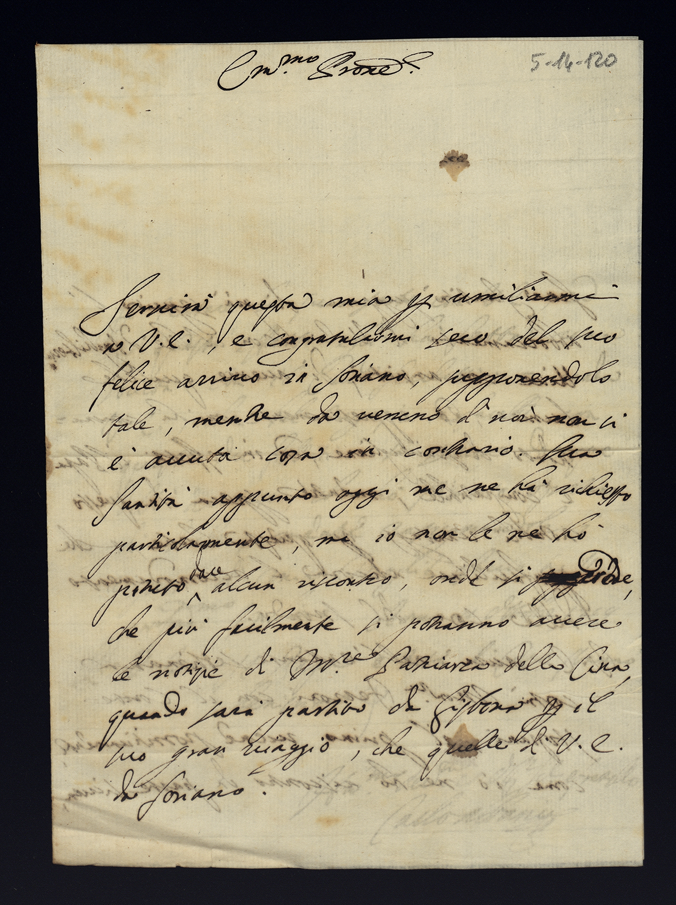 Em.mo Prone.
5-14-120
Servirà questa mia per umiliarmi
a V.E., e congratularmi seco del suo
felice arrivo in Soriano, supponendolo
tale, mentre da veruno di noi non si
è avuta cosa in contrario. Sua
Santità appunto oggi me ne hà richiesto
particolarmente, mà io non le ne hò
potuto dare alcun riscontro, onde si crede,
che più facilmente si potranno avere
le notizie di Mr. Patriarca della Cina,
quando sarà partito da Lisbona per il
suo gran viaggio, che quelle di V.E.
da Soriano.